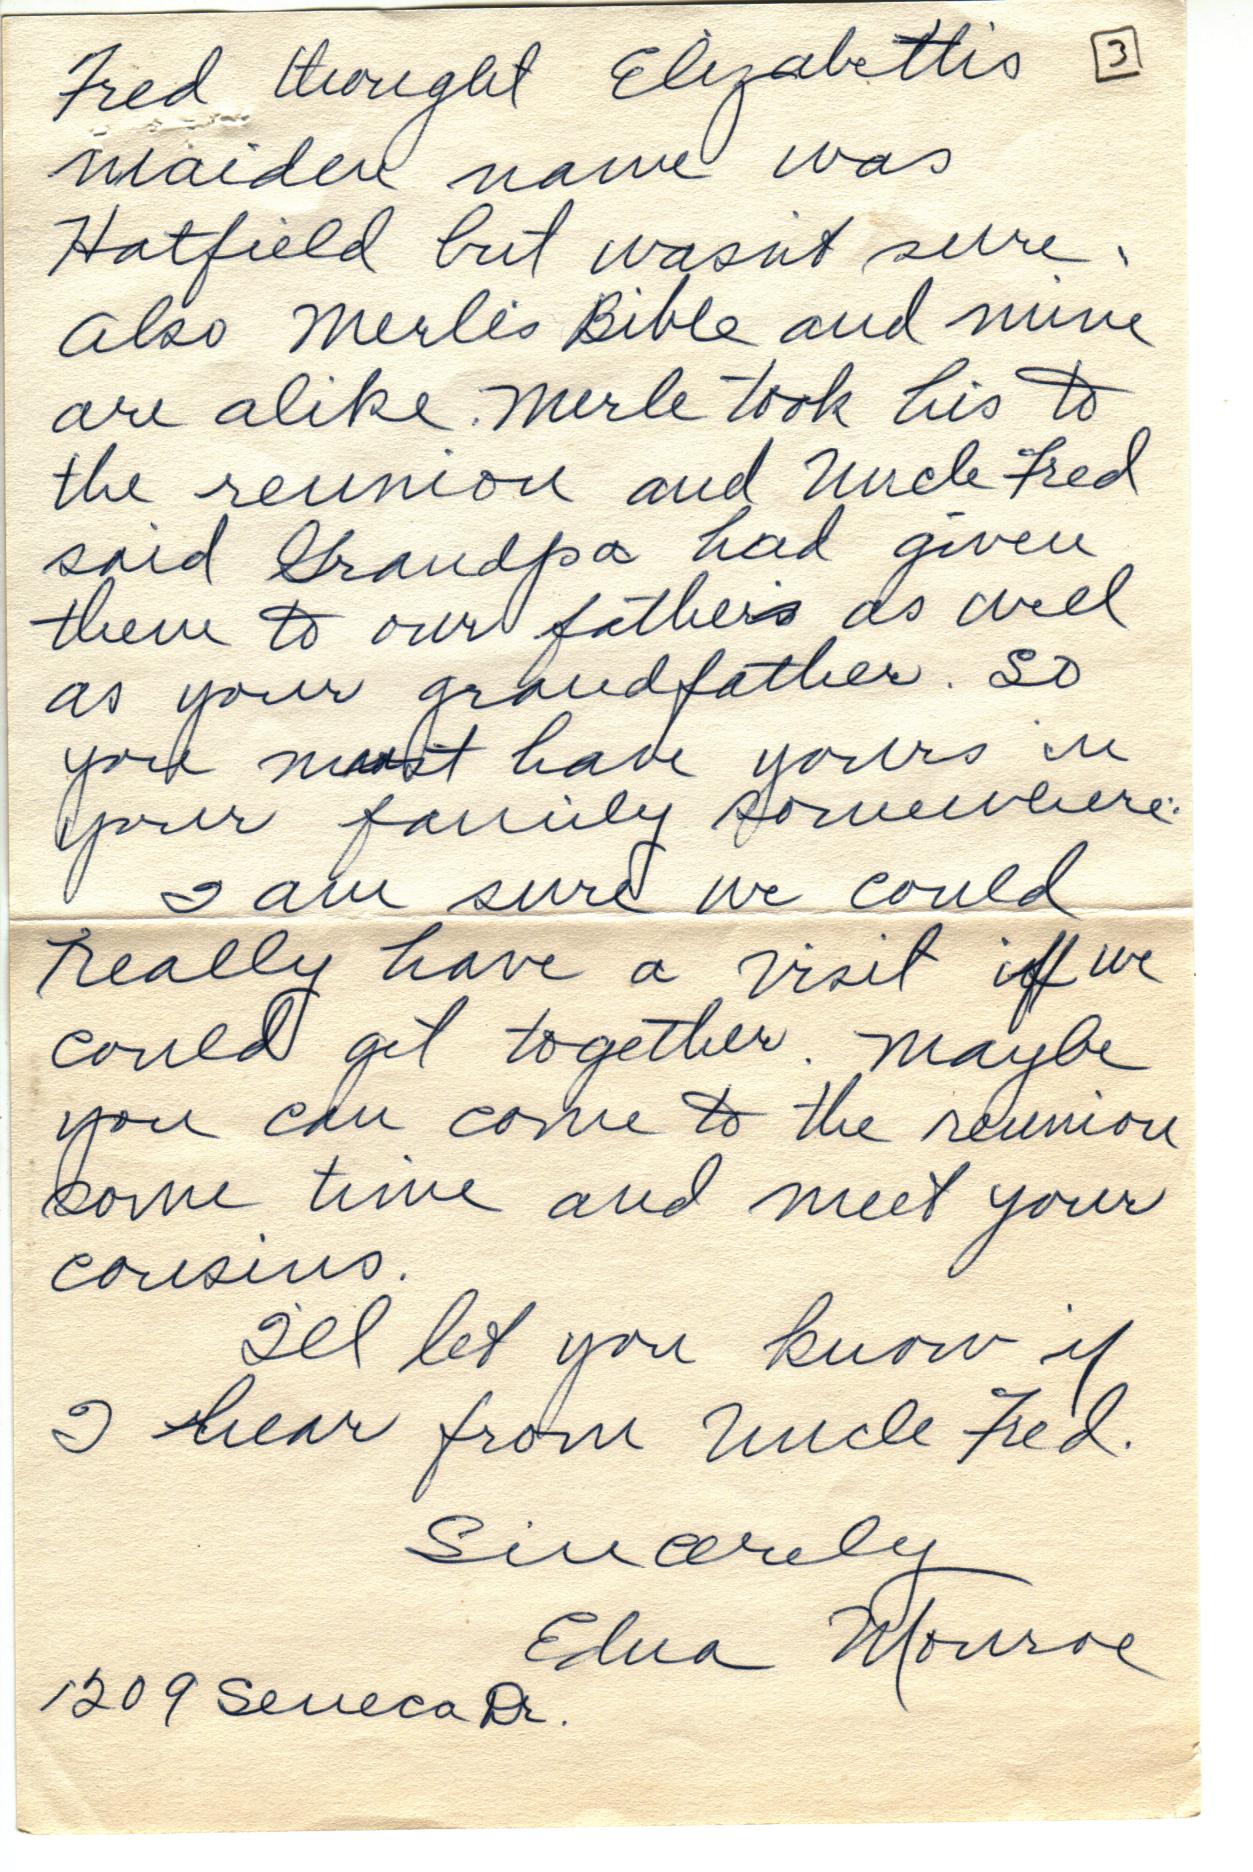 Fred thought Elizabeth's 3
maiden name was
Hatfield but wasn't sure.
Also Merle's Bible and mine
are alike. Merle took his to
the reunion and Uncle Fred
said Grandpa had given
them to our father's as well
as your grandfather. So
you must have yours in
your family somewhere.
I am sure we could
really have a visit if we
could get together. Maybe
you can come to the reunion
some time and meet your
cousins.
I'll let you know if
I hear from Uncle Fred.
Sincerely
Edna Monroe
1209 Seneca Dr.